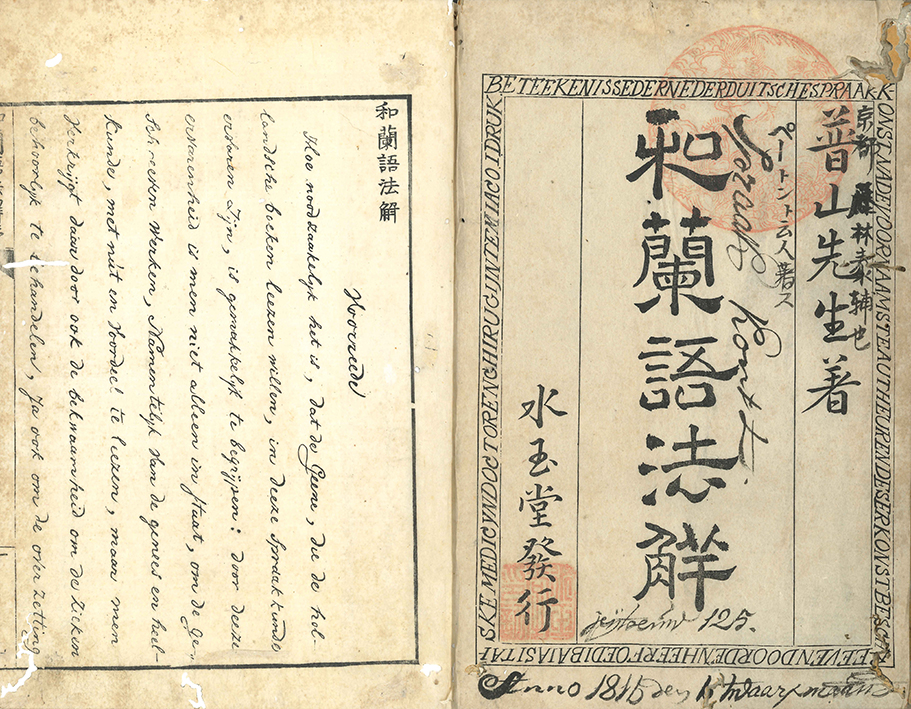 BETEEKENISSEDERNEDERDUITSCHESPRAAKK
ONSTMADETOORNAAMSTEAUTHEURENDESERKONSTBESCHR
EEVENDOORDENHEERFOEDIBAIASITAI
SKEMEDICYNDOCTORENGHIRUGINTEMIACOIDRUK
京都 藤林泰輔也
普山先生著
ペートント云人著ス
Spraak konst.
和蘭語法解
水玉堂發行
125.
Anno 1815 den
和蘭語法解
Voorrede
Hoe noodzaakelyk het is, dat de Geene, die de hol-
landsche boeken leezen willen, in deeze spraakkunde
ervaren zyn, is gemakkelyk te begrypen: door deeze
ervarenheid is men niet alleen in staat, om de Ge-
schreeven Werken, Namentelyk van de genees en heel-
kunde, met nút en voordeel te leezen, maar men
Verkrygt daar door ook de bekwaamheid om de zieken
behoorlyk te behandelen, Ja ook om de overzetting